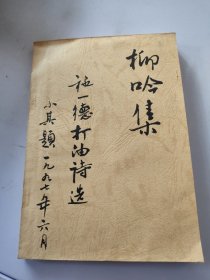 柳吟集
施一德打油诗选
小其题
一九九七年六月